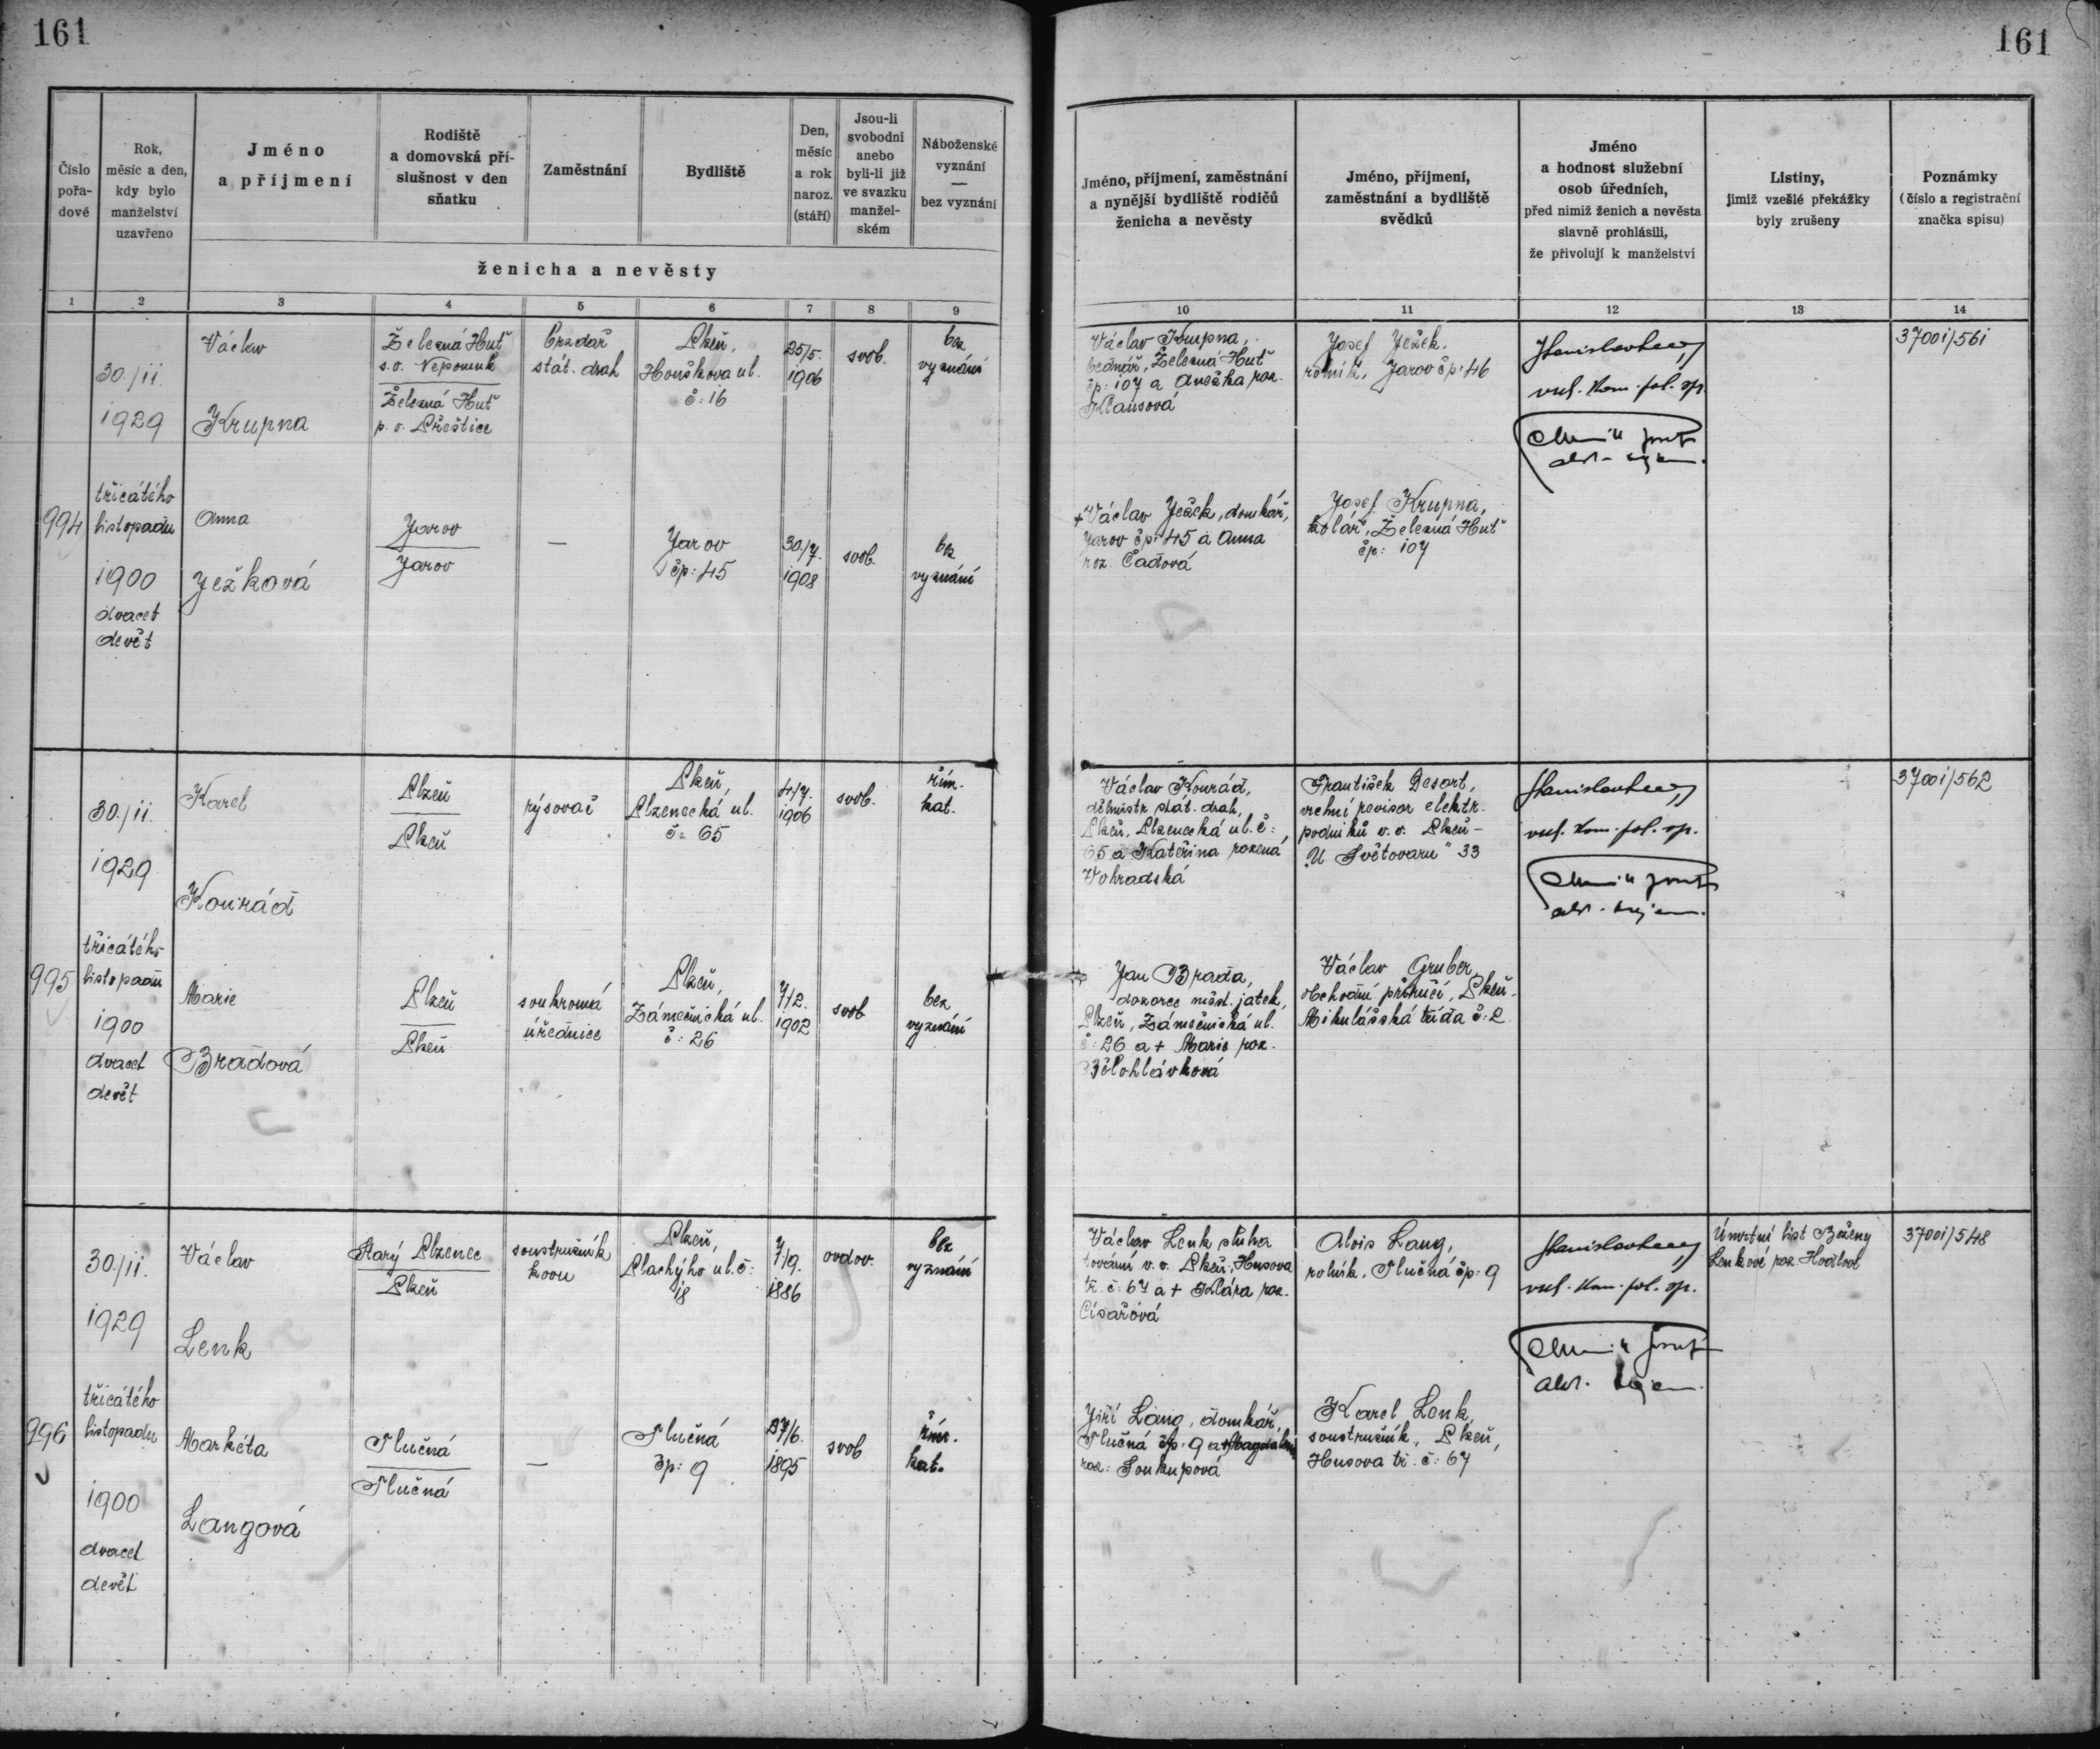 161
161
Číslo
pořa-
dové
Rok,
měsíc a den,
kdy bylo
manželství
uzavřeno
Jméno
a příjmení
Rodiště
a domovská pří-
slušnost v den
sňatku
Zaměstnání
Bydliště
Den,
měsíc
a rok
naroz.
(stáří)
Jsou-li
svobodni
anebo
byli-li již
ve svazku
manžel-
ském
Náboženské
vyznání
—
bez vyznání
ženicha a nevěsty
Jméno, příjmení, zaměstnání
a nynější bydliště rodičů
ženicha a nevěsty
Jméno, příjmení,
zaměstnání a bydliště
svědků
Jméno
a hodnost služební
osob úředních,
před nimiž ženich a nevěsta
slavně prohlásili,
že přivolují k manželství
Listiny,
jimiž vzešlé překážky
byly zrušeny
Poznámky
(číslo a registrační
značka spisu)
1 2 3 4 5 6 7 8 9 10 11 12 13 14
994
30./11.
1929
třicátého
listopadu
1900
dvacet
devět
Václav
Krupna
Železná Huť
s.o. Nepomuk
Železná Huť
p. o. Přeštice
Brzdař
stát. drah
Plzeň,
Houškova ul.
č: 16
25/5.
1906
svob.
bez
vyznání
Václav Krupna,
bednář, Železná Huť
čp: 107 a Anežka roz.
Klausová
Josef Ježek,
rolník, Jarov čp: 46
37001/561
Anna
Ježková
Jarov
Jarov
—
Jarov
čp: 45
30./7.
1908
svob.
bez
vyznání
+ Václav Ježek, domkář,
Jarov čp: 45 a Anna
roz. Čadová
Josef Krupna,
kolář, Železná Huť
čp: 107
995
30./11.
1929
třicátého
listopadu
1900
dvacet
devět
Karel
Konrád
Plzeň
Plzeň
rýsovač
Plzeň,
Plzenecká ul.
č: 65
4/7.
1906
svob.
řím.
kat.
Václav Konrád,
dílmistr stát. drah,
Plzeň, Plzenecká ul. č:
65 a Kateřina rozená
Vohradská
František Desort,
vrchní revisor elektr.
podniků v. v. Plzeň-
„U Světovaru" 33
37001/562
Marie
Bradová
Plzeň
Plzeň
soukromá
úřednice
Plzeň,
Zámečnická ul.
č: 26
7/2.
1902
svob
bez
vyznání
Jan Brada,
dozorce měst. jatek,
Plzeň, Zámečnická ul.
č: 26 a + Marie roz.
Bělohlávková
Václav Gruber,
obchodní příručí, Plzeň-
Mikulášská třída č: 2.
996
30./11.
1929
třicátého
listopadu
1900
dvacet
devět
Václav
Lenk
Starý Plzenec
Plzeň
soustružník
kovu
Plzeň,
Plachýho ul. č:
18
7/9.
1886
ovdov.
bez
vyznání
Václav Lenk sluha
továrni v. v. Plzeň, Husova
tř. č: 67 a + Klára roz.
Císařová
Alois Lang,
rolník, Tlučná čp: 9
Úmrtní list Boženy
Lenkové roz.
37001/548
Markéta
Langová
Tlučná
Tlučná
—
Tlučná
čp: 9
27/6.
1895
svob
řím.
kat.
Jiří Lang, domkář,
Tlučná čp: 9 a + Magdalena
roz: Soukupová
Karel Lenk,
soustružník, Plzeň,
Husova tř. č: 67